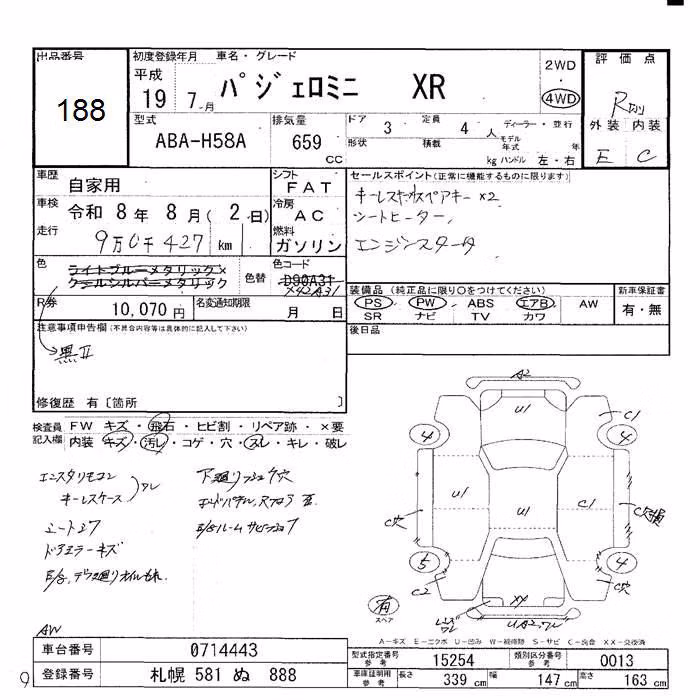 出品番号
188
初度登録年月 車名・グレード
平成 19 7月 パジェロミニ XR
2WD
・
4WD
評価点
R
外装 内装
E C
型式
ABA-H58A
排気量
659 CC
ドア 3 定員 4 人 ディーラー・並行
形状 積載 kg モデル年式 年 ハンドル 左・右
車歴 自家用
シフト FAT
車検 令和 8年 8月(2日)
冷房 AC
走行 9万0千427 km
燃料 ガソリン
セールスポイント(正常に機能するものに限ります)
キーレスキー スペアキー ×2
シートヒーター
エンジンスタータ
色 ライトブルーメタリック×
クールシルバーメタリック
色替
色コード
D90A31
X42A31
R券 10,070円
名変通知期限 月 日
装備品(純正品に限り○をつけてください)
PS PW ABS エアB AW
SR ナビ TV カワ
新車保証書
有・無
後日品
注意事項申告欄(不具合内容等は具体的に記入して下さい)
黒II
修復歴 有〔箇所 〕
検査員記入欄
FW キズ・飛石・ヒビ割・リペア跡・×要
内装・キズ・汚レ・コゲ・穴・スレ・キレ・破レ
エンスタリモコン
キーレスケース
ワレ
シートスレ
ドアミラーキズ
下廻りフレーム穴
AW
A2
U1
C1
4
4
U1
U1
C1
C穴
C欠損
5
4
C2
C穴
XX
有
スペア
A-キズ E-エクボ U-凹ミ W-補修跡 S-サビ C-腐食 XX-交換済
車台番号 0714443
登録番号 札幌 581 ぬ 888
型式指定番号 参考 15254
類別区分番号 参考 0013
車庫証明用 参考 長さ 339 cm 幅 147 cm 高さ 163 cm
9